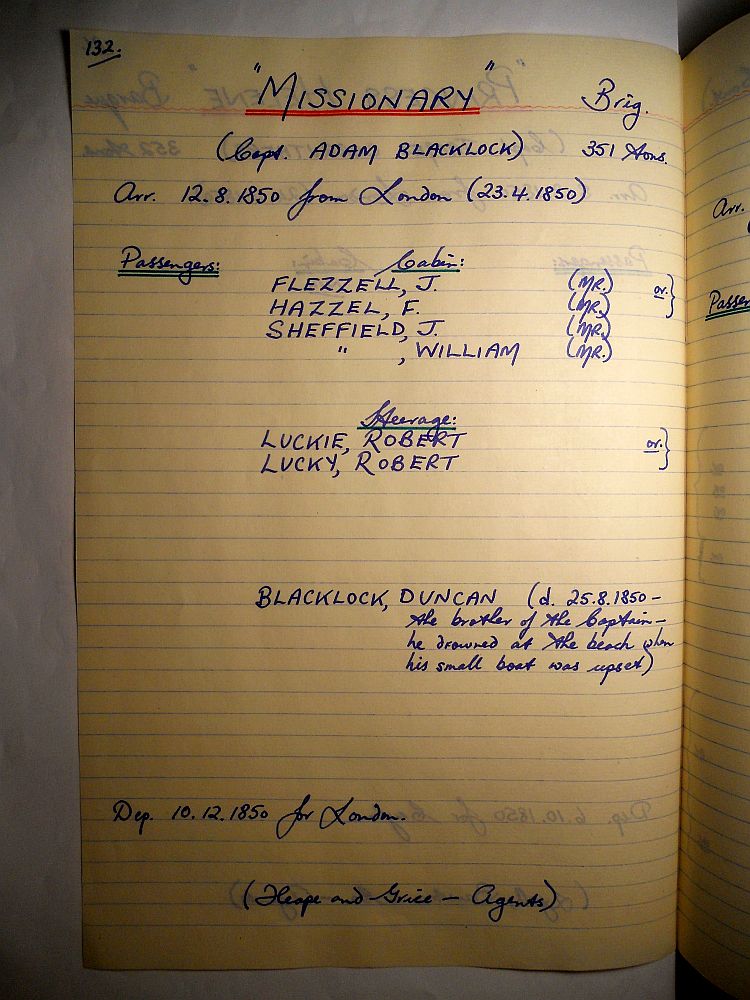 132.
"MISSIONARY" Brig.
(Capt. ADAM BLACKLOCK) 351 tons.
Arr. 12.8.1850 from London (23.4.1850)
Passengers: Cabin:
FLEZZELL, J. (MR.) or. }
HAZZEL, F. (MR.)
SHEFFIELD, J. (MR.)
" , WILLIAM (MR.)
Steerage:
LUCKIE, ROBERT or. }
LUCKY, ROBERT
BLACKLOCK, DUNCAN (d. 25.8.1850 –
the brother of the Captain –
he drowned at the beach when
his small boat was upset)
Dep. 10.12.1850 for London.
(Heape and Grice – Agents)
Arr.
Passen